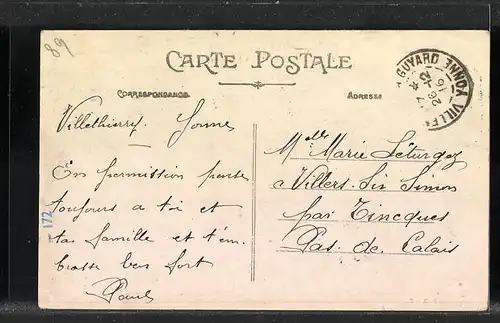 89
CARTE POSTALE
CORRESPONDANCE
ADRESSE
GUYARD YONNE
26 -12
Villethierry. Yonne
En permission pense
toujours a toi et
ta famille et t'em
brasse bien fort
Paul
172
Melle Marie Leturgez
a Villers. Sir Simon
par Tincques
Pas. de. Calais